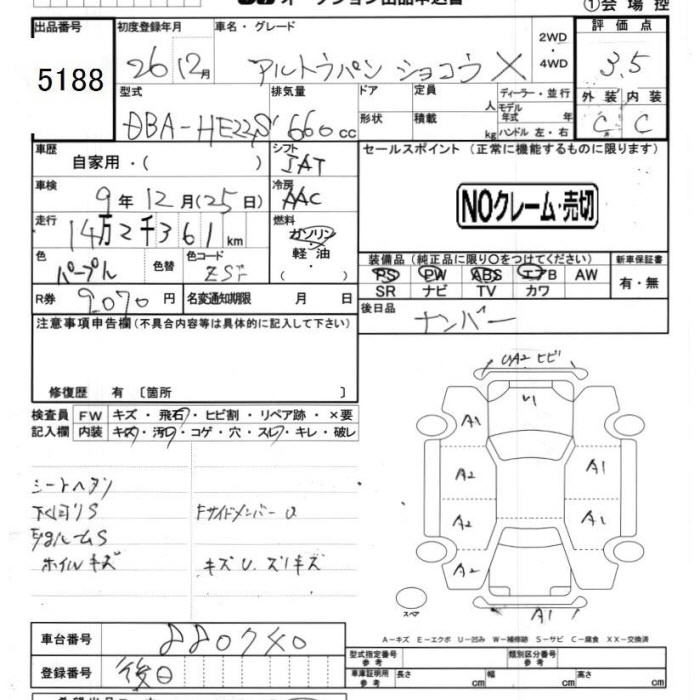 オークション出品申込書 ①会場控
出品番号 初度登録年月 車名・グレード 2WD・4WD 評価点
5188 26 12月 アルトラパン ショコラ X 3.5
型式 排気量 ドア 定員 人 ディーラー・並行 外装 内装
DBA-HE22S 660cc 形状 積載 kg モデル年式 年 ハンドル 左・右 C C
車歴 自家用・( ) シフト IAT セールスポイント(正常に機能するものに限ります)
車検 9年12月(25日) 冷房 AAC NOクレーム・売切
走行 14万2千361km 燃料 ガソリン 軽油 ・( )
装備品(純正品に限り○をつけてください) 新車保証書
色 パープル 色替 色コード PS PW ABS エアB AW 有・無
SR ナビ TV カワ
R券 9070円 名変通知期限 月 日 後日品 ナンバー
注意事項申告欄(不具合内容等は具体的に記入して下さい)
修復歴 有 〔箇所 〕
UA2 ヒビ
検査員 FW キズ・飛石・ヒビ割・リペア跡・×要
記入欄 内装 キズ・汚レ・コゲ・穴・スレ・キレ・破レ
U
A1
A2 A1
A2 A1
A2
A1
シートヘタリ
下回リS FサイドメンバーU
ホイルキズ キズU.ズリキズ
スペア
A－キズ E－エクボ U－凹み W－補修跡 S－サビ C－腐食 XX－交換済
車台番号 880740 型式指定番号 参考 類別区分番号 参考
登録番号 後日 車庫証明用 参考 長さ cm 幅 cm 高さ cm